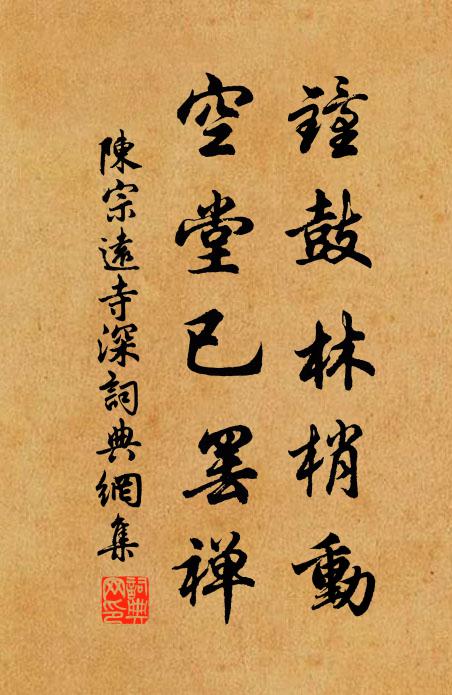 鐘鼓林梢動
空堂已罢禅
陳宗遠寺深詞典網集
詞典网印